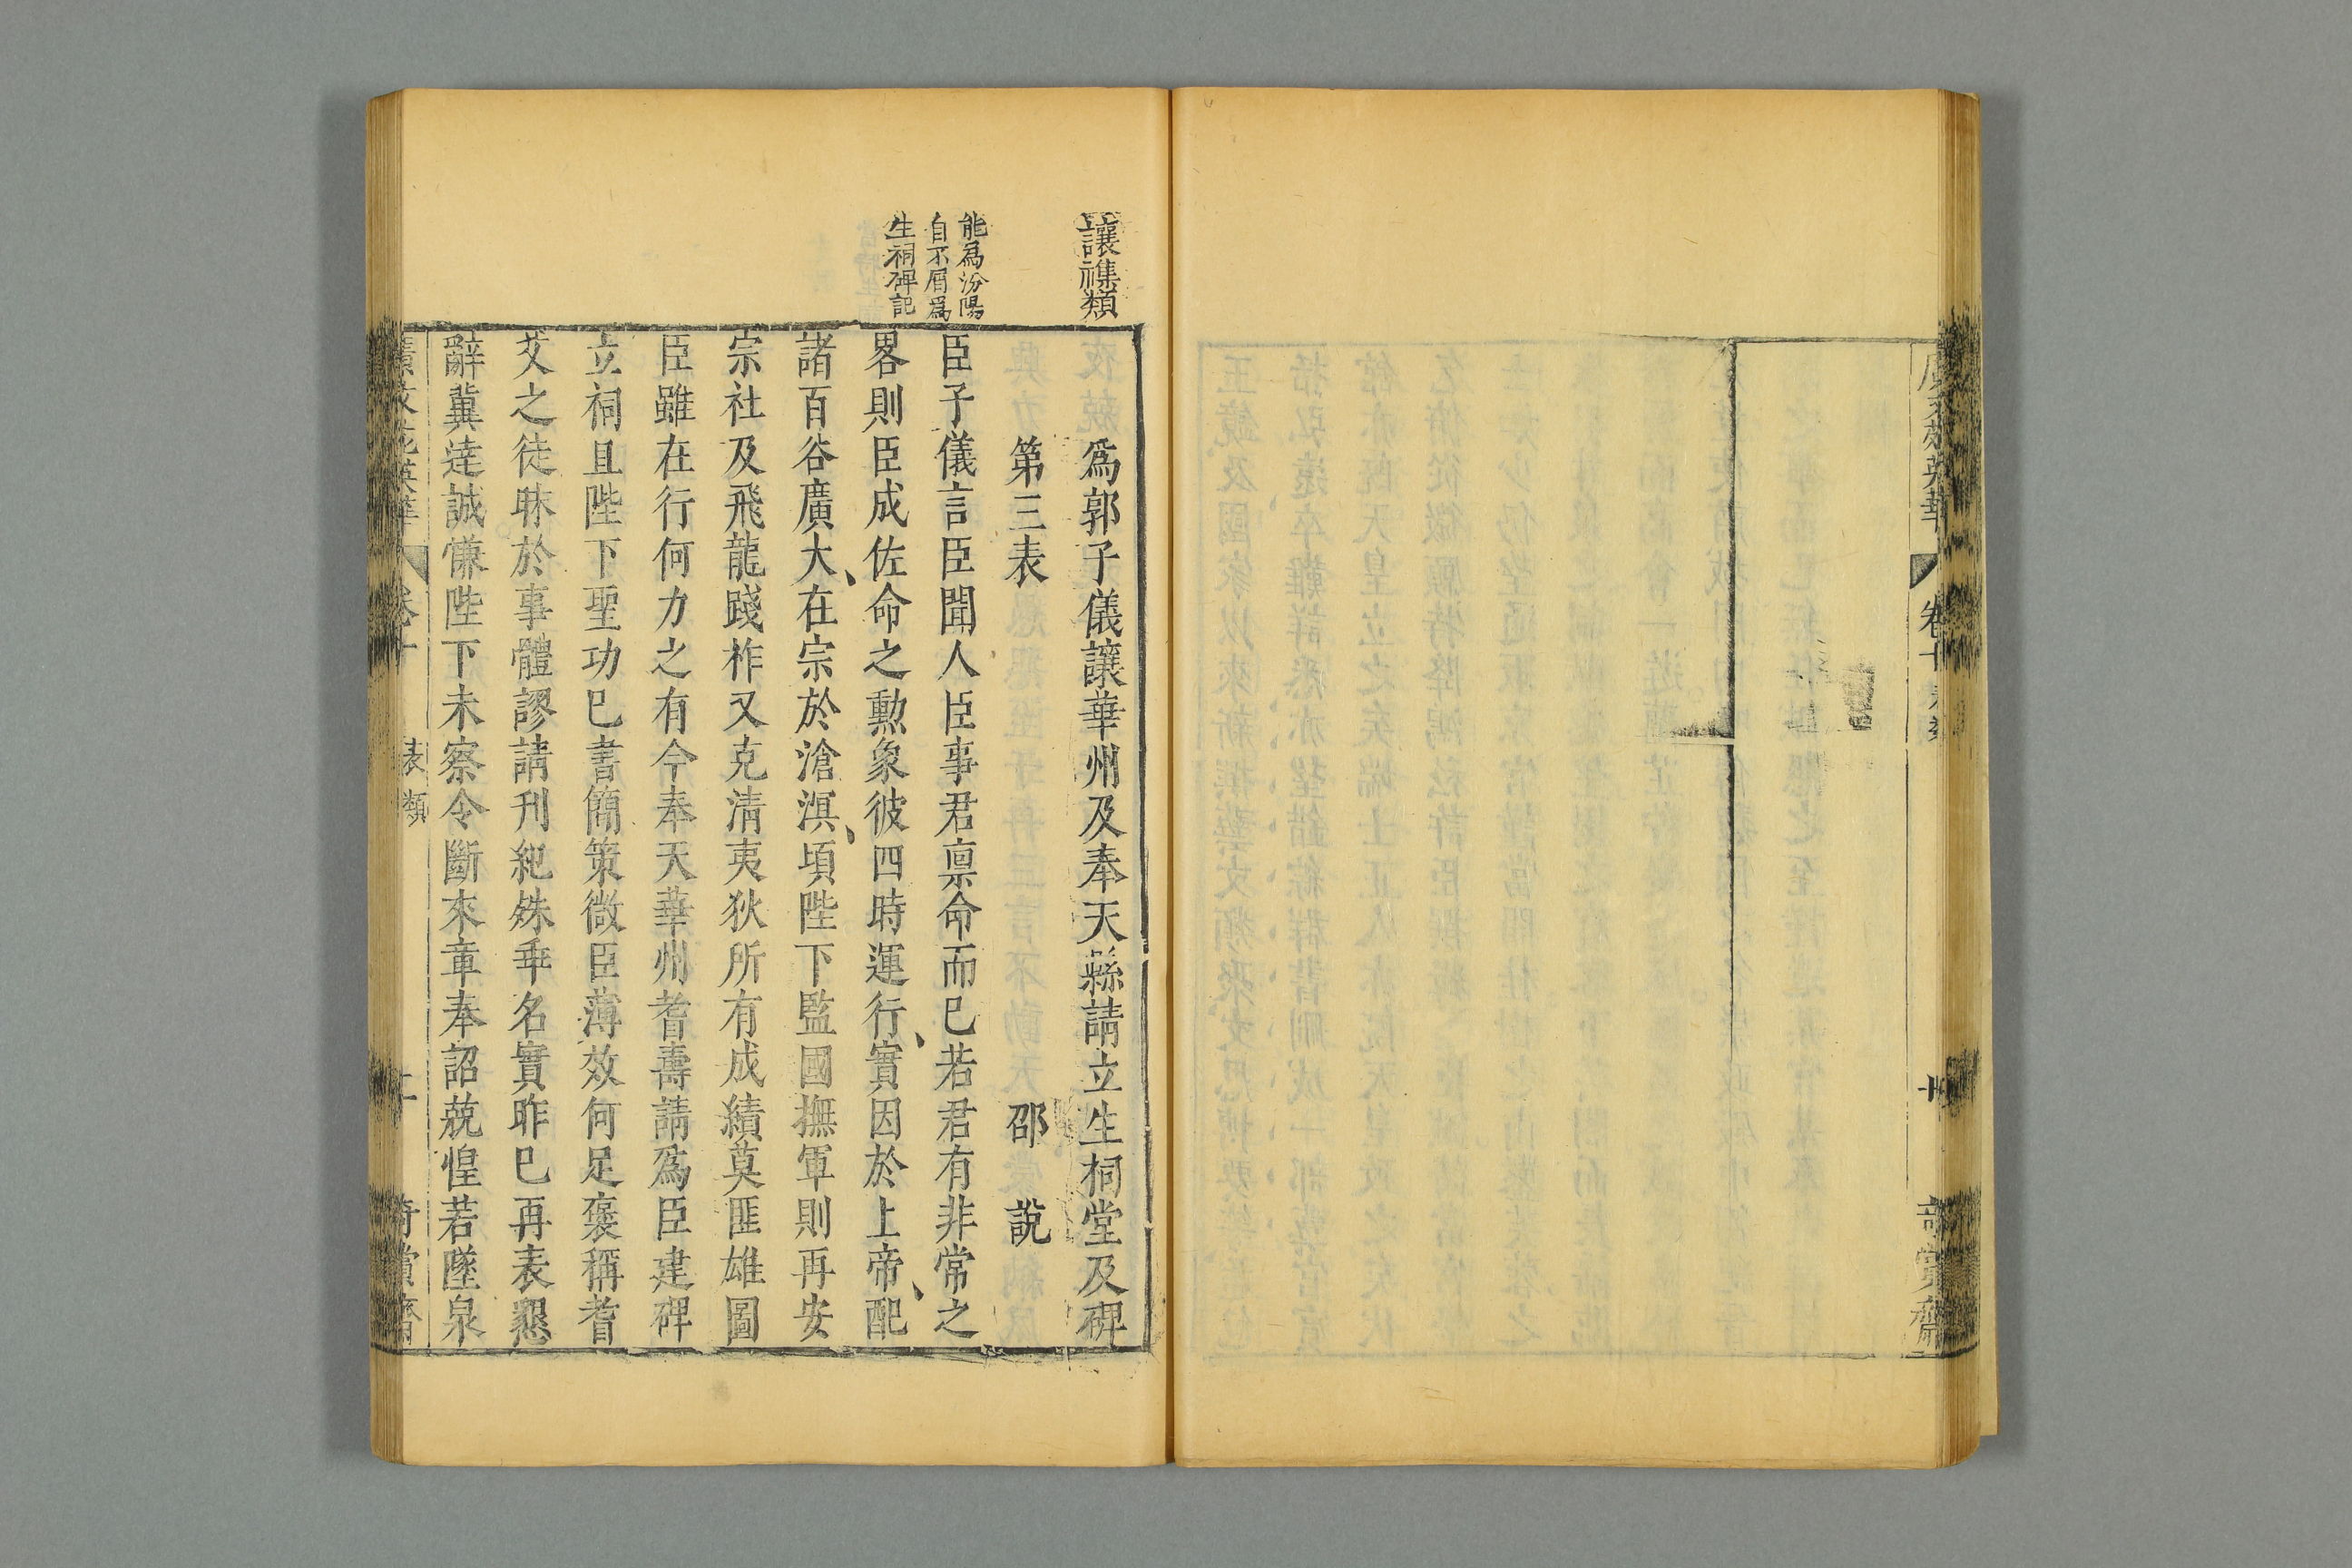 卷十
奇賞齋
讓襍類
能爲汾陽
自不屑爲
生祠碑記
爲郭子儀讓華州及奉天縣請立生祠堂及碑
第三表　邵說
臣子儀言臣聞人臣事君禀命而已若君有非常之
畧則臣成佐命之勲象彼四時運行、實因於上帝、配
諸百谷廣大、在宗於滄溟、頃陛下監國撫軍則再安
宗社及飛龍踐柞又克清夷狄所有成績莫匪雄圖
臣雖在行何力之有今奉天華州耆壽請爲臣建碑
立祠且陛下聖功已書簡策微臣薄效何足褒稱耆
艾之徒昧於事體謬請刊紀殊乖名實昨已再表懇
辭冀達誠慊陛下未察令斷來章奉詔兢惶若墜泉
卷十
表類
奇賞齋